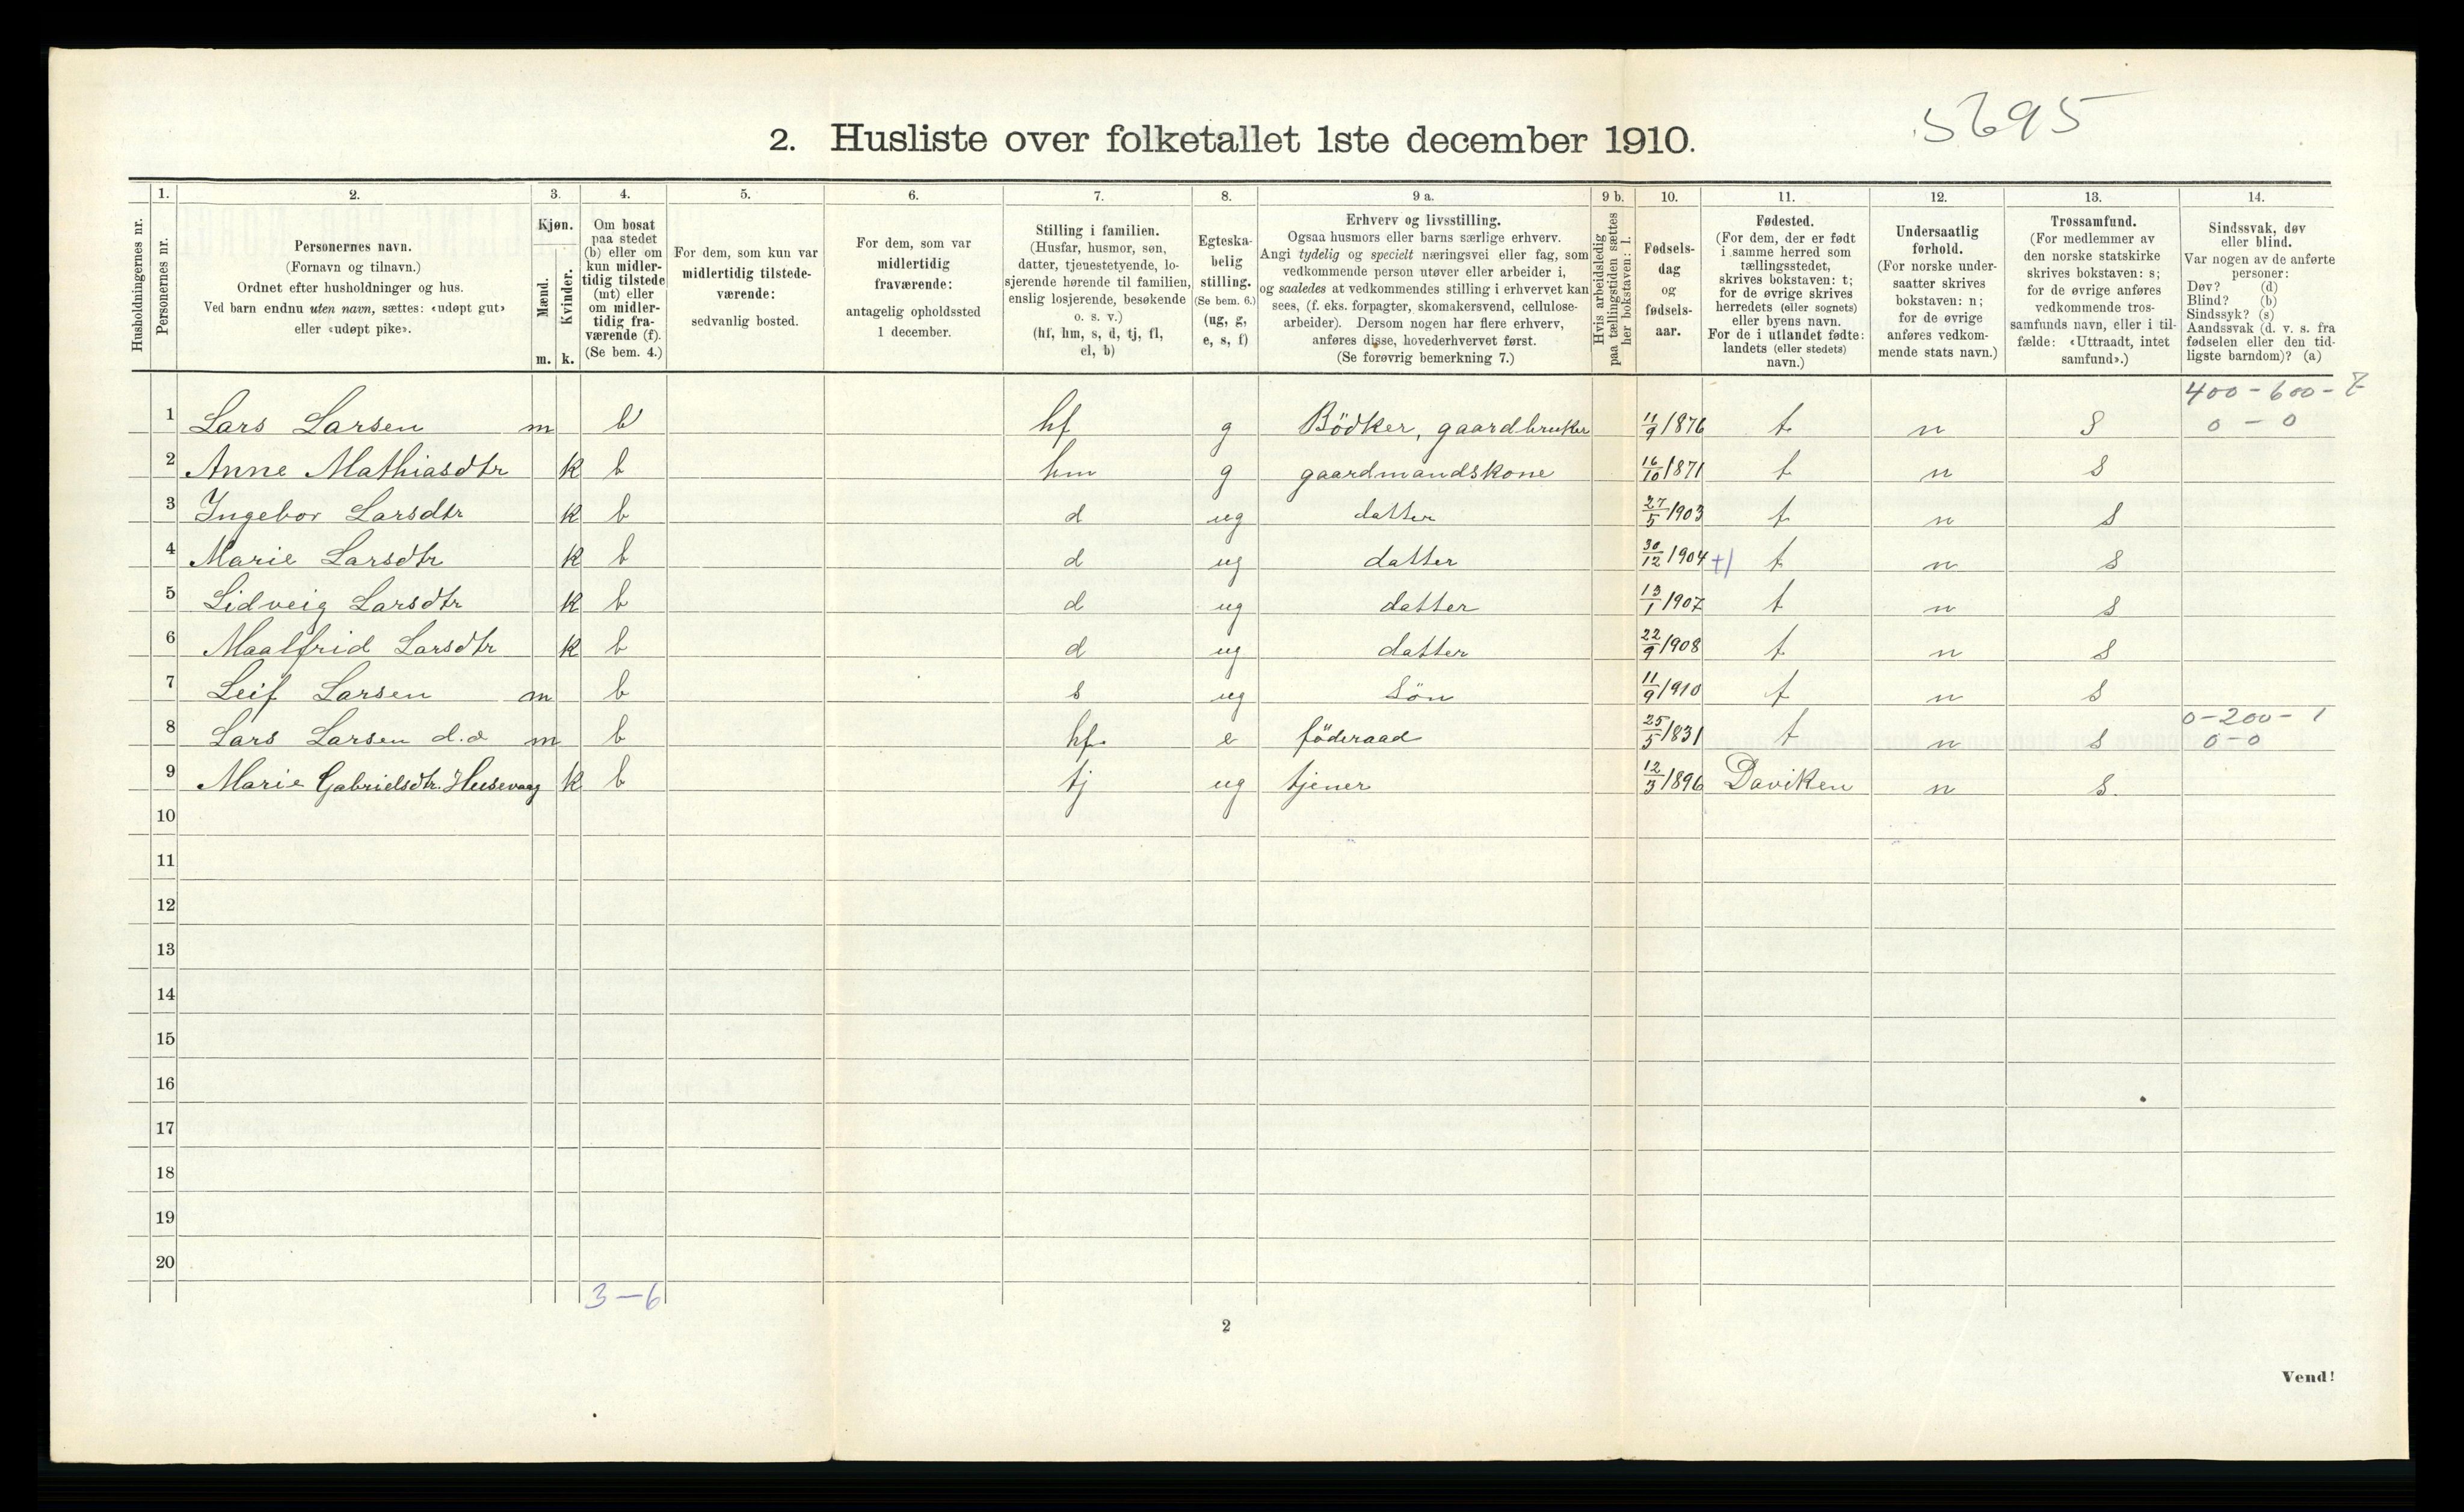 5695
2. Husliste over folketallet 1ste december 1910.
Husholdningernes nr.
1.
Personernes nr.
2.
Personernes navn.
(Fornavn og tilnavn.)
Ordnet efter husholdninger og hus.
Ved barn endnu uten navn, sættes: «udøpt gut»
eller «udøpt pike».
3.
Kjøn.
Mænd.
Kvinder.
m. k.
4.
Om bosat
paa stedet
(b) eller om
kun midler-
tidig tilstede
(mt) eller
om midler-
tidig fra-
værende (f).
(Se bem. 4.)
5.
For dem, som kun var
midlertidig tilstede-
værende:
sedvanlig bosted.
6.
For dem, som var
midlertidig
fraværende:
antagelig opholdssted
1 december.
7.
Stilling i familien.
(Husfar, husmor, søn,
datter, tjenestetyende, lo-
sjerende hørende til familien,
enslig losjerende, besøkende
o. s. v.)
(hf, hm, s, d, tj, fl,
el, b)
8.
Egteska-
belig
stilling.
(Se bem. 6.)
(ug, g,
e, s, f)
9 a.
Erhverv og livsstilling.
Ogsaa husmors eller barns særlige erhverv.
Angi tydelig og specielt næringsvei eller fag, som
vedkommende person utøver eller arbeider i,
og saaledes at vedkommendes stilling i erhvervet kan
sees, (f. eks. forpagter, skomakersvend, cellulose-
arbeider). Dersom nogen har flere erhverv,
anføres disse, hovederhvervet først.
(Se forøvrig bemerkning 7.)
9 b.
Hvis arbeidsledig
paa tællingstiden sættes
her bokstaven: l.
10.
Fødsels-
dag
og
fødsels-
aar.
11.
Fødested.
(For dem, der er født
i samme herred som
tællingsstedet,
skrives bokstaven: t;
for de øvrige skrives
herredets (eller sognets)
eller byens navn.
For de i utlandet fødte:
landets (eller stedets)
navn.)
12.
Undersaatlig
forhold.
(For norske under-
saatter skrives
bokstaven: n;
for de øvrige
anføres vedkom-
mende stats navn.)
13.
Trossamfund.
(For medlemmer av
den norske statskirke
skrives bokstaven: s;
for de øvrige anføres
vedkommende tros-
samfunds navn, eller i til-
fælde: «Uttraadt, intet
samfund».)
14.
Sindssvak, døv
eller blind.
Var nogen av de anførte
personer:
Døv? (d)
Blind? (b)
Sindssyk? (s)
Aandssvak (d. v. s. fra
fødselen eller den tid-
ligste barndom)? (a)
400 - 600 - 7
1 Lars Larsen m b hf g Bödker, gaardbruker 11/9 1876 t n S 0 - 0
2 Anne Mathiasdtr k b hm g gaardmandskone 16/10 1871 t n S
3 Ingebor Larsdtr k b d ug datter 27/5 1903 t n s
4 Marie Larsdtr k b d ug datter 30/12 1904 +1 t n s
5 Lidveig Larsdtr k b d ug datter 13/1 1907 t n s
6 Maalfrid Larsdtr k b d ug datter 22/9 1908 t n s
7 Leif Larsen m b s ug Sön 11/9 1910 t n s
0-200-1
8 Lars Larsen d.æ m b hf. e föderaad 25/5 1831 t n s 0-0
9 Marie Gabrielsdtr. Husevaag k b tj ug tjener 12/3 1896 Daviken n s.
10
11
12
13
14
15
16
17
18
19
20
3-6
2
Vend!